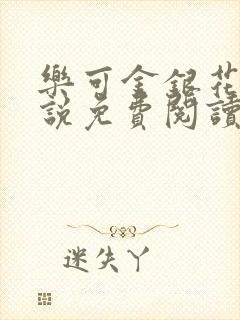 樂可金銀花
説免費閱讀
迷失丫